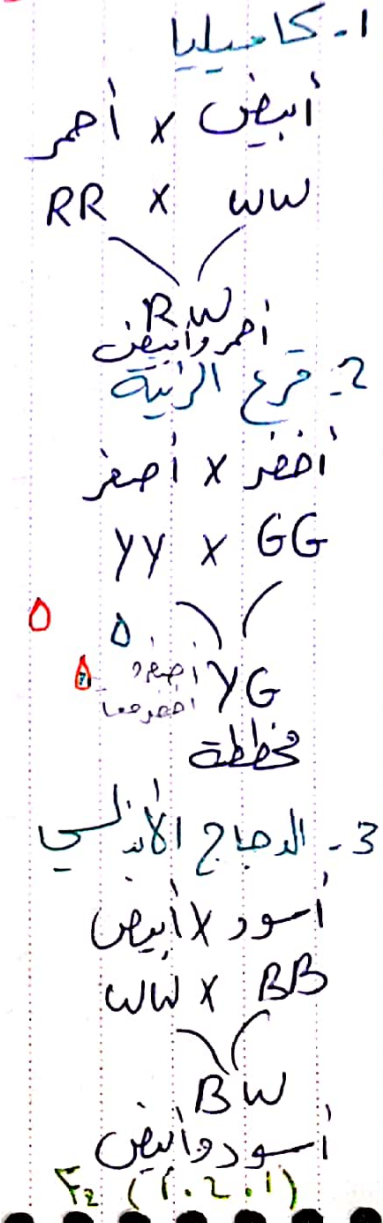 1- كاميليا
أبيض x أحمر
RR x WW
RW
أحمر وأبيض
2- قرع الزينة
أخضر x أصفر
YY x GG
YG
أصفر و
أخضر معا
مخططة
3- الدجاج الأندلسي
أسود x أبيض
WW x BB
BW
أسود وأبيض
F2 (1.2.1)